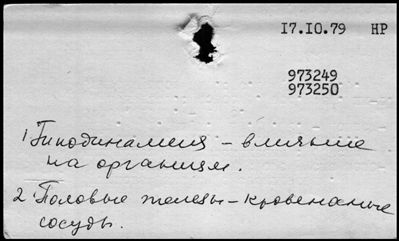 17.10.79 НР
973249
973250
1) Гиподинамия – влияние
на организм.
2. Половые железы – кровеносные
сосуды.